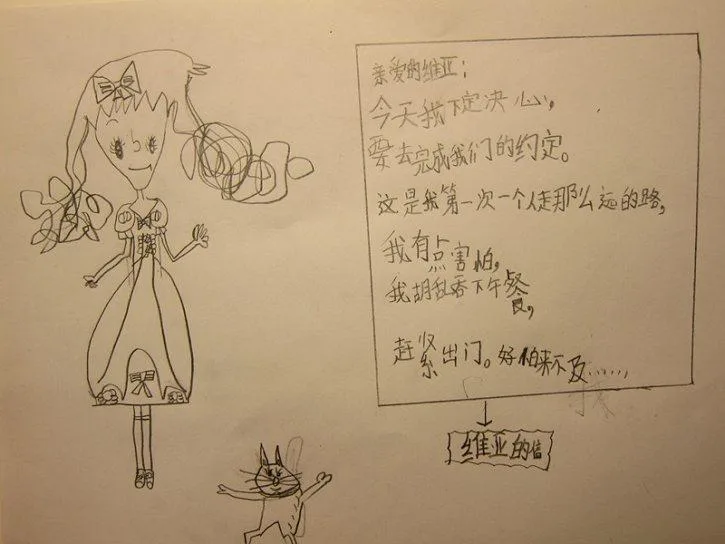 亲爱的维亚：
今天我下定决心，
要去完成我们的约定。
这是我第一次一个人走那么远的路，
我有点害怕，
我胡乱吞下午餐，
赶紧出门。好怕来不及……
维亚的信